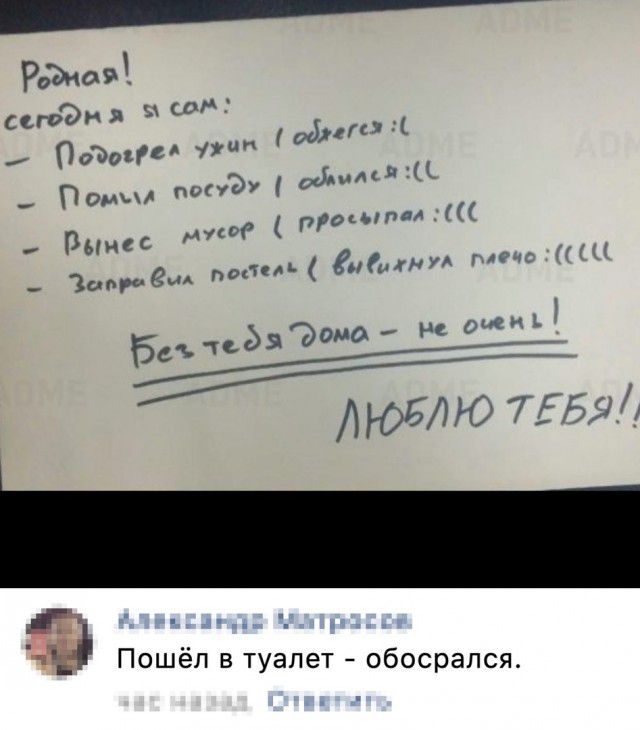 Родная!
сегодня я сам:
– Подогрел ужин (обжегся :(
– Помыл посуду (облился :((
– Вынес мусор (просыпал :(((
– Заправил постель (вывихнул плечо :(((((
Без тебя дома – не очень!
ЛЮБЛЮ ТЕБЯ!!
Пошёл в туалет - обосрался.